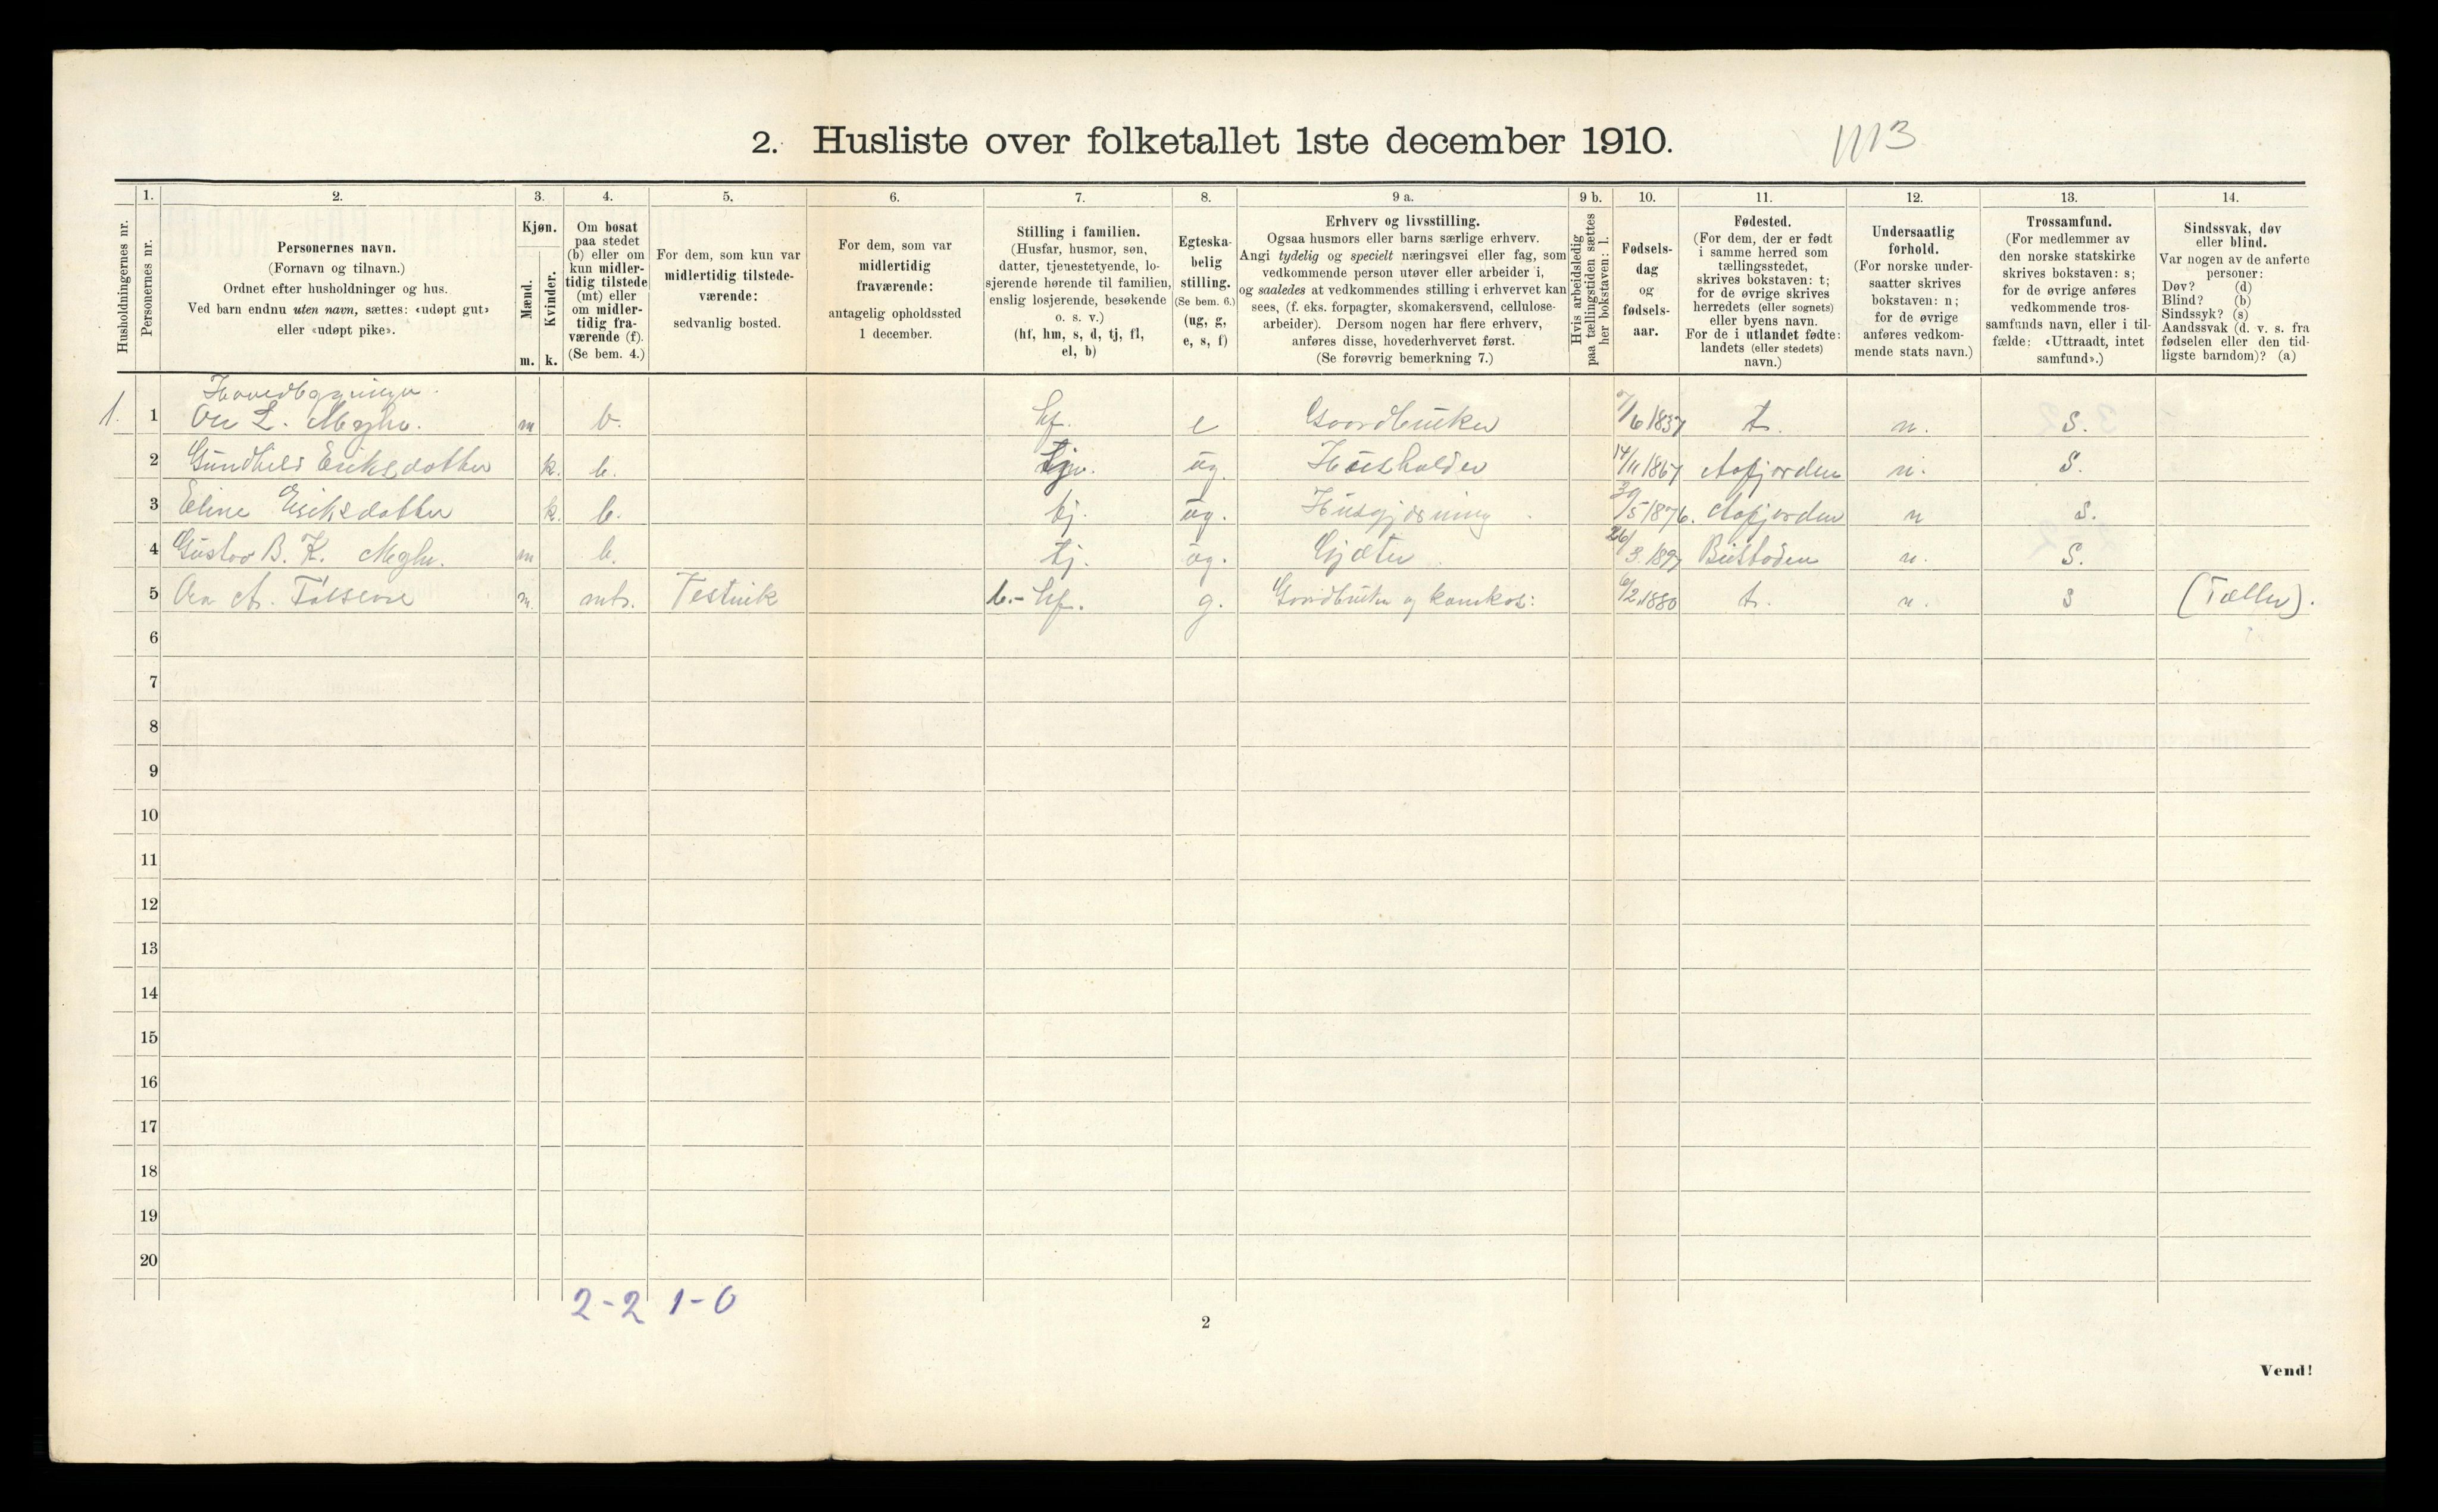 2. Husliste over folketallet 1ste december 1910.
1113
1. 2. 3. 4. 5. 6. 7. 8. 9 a. 9 b. 10. 11. 12. 13. 14.
Husholdningernes nr.
Personernes nr.
Personernes navn.
(Fornavn og tilnavn.)
Ordnet efter husholdninger og hus.
Ved barn endnu uten navn, sættes: «udøpt gut»
eller «udøpt pike».
Kjøn.
Mænd.
Kvinder.
m. k.
Om bosat
paa stedet
(b) eller om
kun midler-
tidig tilstede
(mt) eller
om midler-
tidig fra-
værende (f).
(Se bem. 4.)
For dem, som kun var
midlertidig tilstede-
værende:
sedvanlig bosted.
For dem, som var
midlertidig
fraværende:
antagelig opholdssted
1 december.
Stilling i familien.
(Husfar, husmor, søn,
datter, tjenestetyende, lo-
sjerende hørende til familien,
enslig losjerende, besøkende
o. s. v.)
(hf, hm, s, d, tj, fl,
el, b)
Egteska-
belig
stilling.
(Se bem. 6.)
(ug, g,
e, s, f)
Erhverv og livsstilling.
Ogsaa husmors eller barns særlige erhverv.
Angi tydelig og specielt næringsvei eller fag, som
vedkommende person utøver eller arbeider i,
og saaledes at vedkommendes stilling i erhvervet kan
sees, (f. eks. forpagter, skomakersvend, cellulose-
arbeider). Dersom nogen har flere erhverv,
anføres disse, hovederhvervet først.
(Se forøvrig bemerkning 7.)
Hvis arbeidsledig
paa tællingstiden sættes
her bokstaven: l.
Fødsels-
dag
og
fødsels-
aar.
Fødested.
(For dem, der er født
i samme herred som
tællingsstedet,
skrives bokstaven: t;
for de øvrige skrives
herredets (eller sognets)
eller byens navn.
For de i utlandet fødte:
landets (eller stedets)
navn.)
Undersaatlig
forhold.
(For norske under-
saatter skrives
bokstaven: n;
for de øvrige
anføres vedkom-
mende stats navn.)
Trossamfund.
(For medlemmer av
den norske statskirke
skrives bokstaven: s;
for de øvrige anføres
vedkommende tros-
samfunds navn, eller i til-
fælde: «Uttraadt, intet
samfund».)
Sindssvak, døv
eller blind.
Var nogen av de anførte
personer:
Døv? (d)
Blind? (b)
Sindssyk? (s)
Aandssvak (d. v. s. fra
fødselen eller den tid-
ligste barndom)? (a)
1. 1 L. m b. hf. e Gaardbruker 1837 t. n. S.
2 Gundhild Eriksdatter k. b. ug Husholder 14/11 1867 Aafjorden n. S.
3 Eline Eriksdatter k. b. tj. ug. Husgjerning 30/5 1876. Aafjorden n S.
4 Gustav B. K. m b. tj. ug. Gjæter 26/3 1897 n. S.
5 m. mt. b.- hf. g. Gaardbruker og 6/2 1880 t. n. s (Tæller).
6
7
8
9
10
11
12
13
14
15
16
17
18
19
20
2-2 1-0
2
Vend!